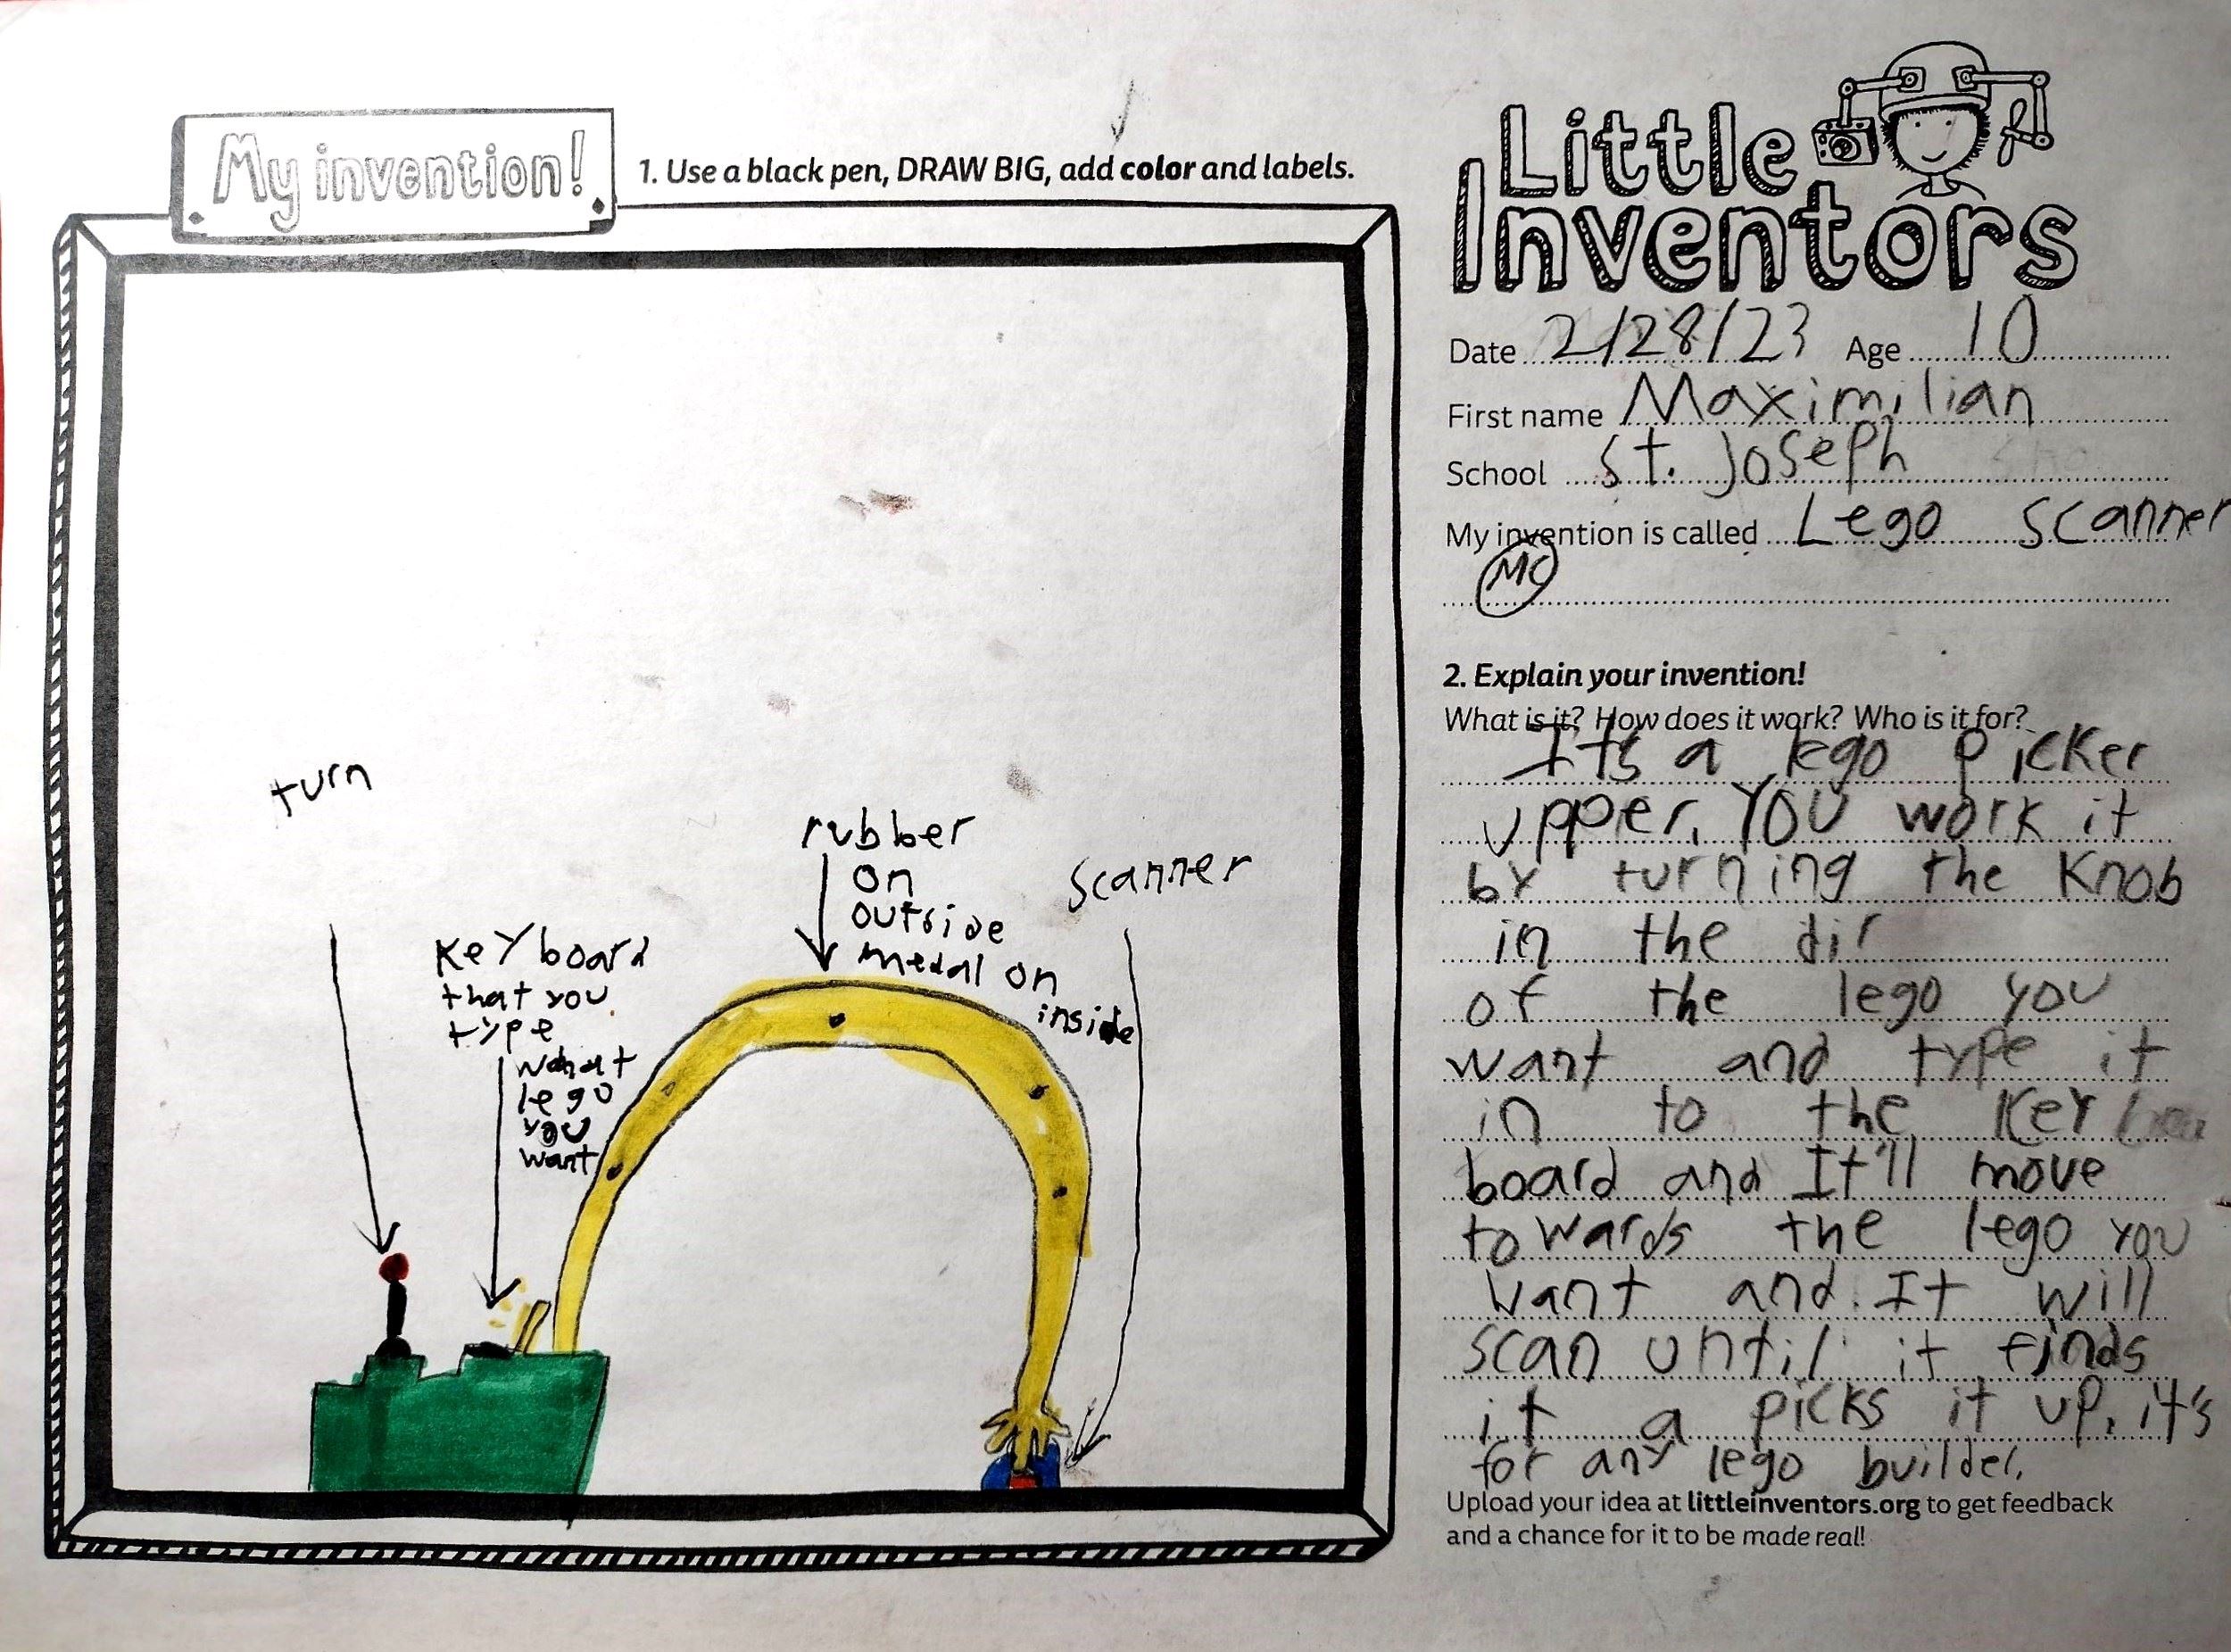 My invention!
1. Use a black pen, DRAW BIG, add color and labels.
turn
keyboard
that you
type
what
lego
you
want
rubber
on
outside
medal on
inside
scanner
Little
Inventors
Date 2/28/23 Age 10
First name Maximilian
School St. Joseph
My invention is called Lego scanner
MC
2. Explain your invention!
What is it? How does it work? Who is it for?
Its a lego picker
upper. you work it
by turning the knob
in the dir
of the lego you
want and type it
in to the key
board and It'll move
towards the lego you
want and. It will
scan until it finds
it a picks it up. it's
for any lego builder.
Upload your idea at littleinventors.org to get feedback
and a chance for it to be made real!